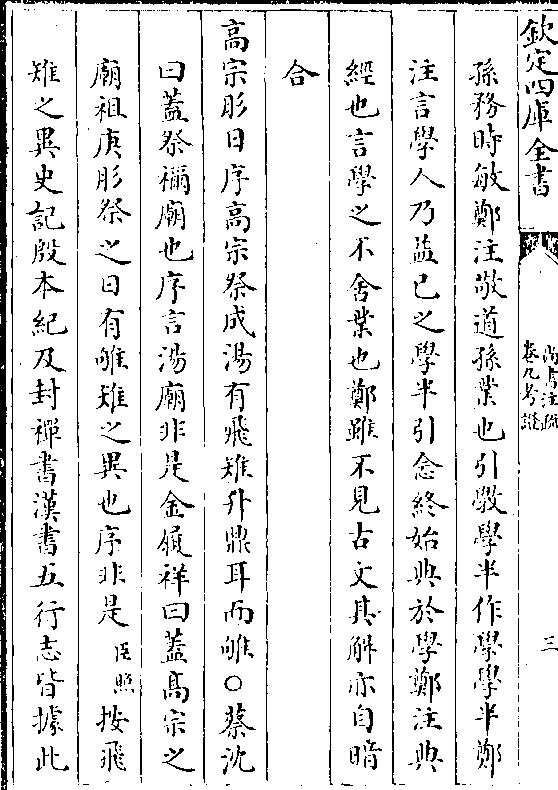 欽定四庫全書
尚書注疏
卷九考證
三
孫務時敏鄭注敬道孫業也引斆學半作學學半鄭
注言學人乃益已之學半引念終始典於學鄭注典
經也言學之不舍業也鄭雖不見古文其解亦自暗
合
高宗肜日序高宗祭成湯有飛雉升鼎耳而雊○蔡沈
曰蓋祭禰廟也序言湯廟非是金履祥曰蓋高宗之
廟祖庚肜祭之日有雊雉之異也序非是臣照按飛
雉之異史記殷本紀及封禪書漢書五行志皆據此